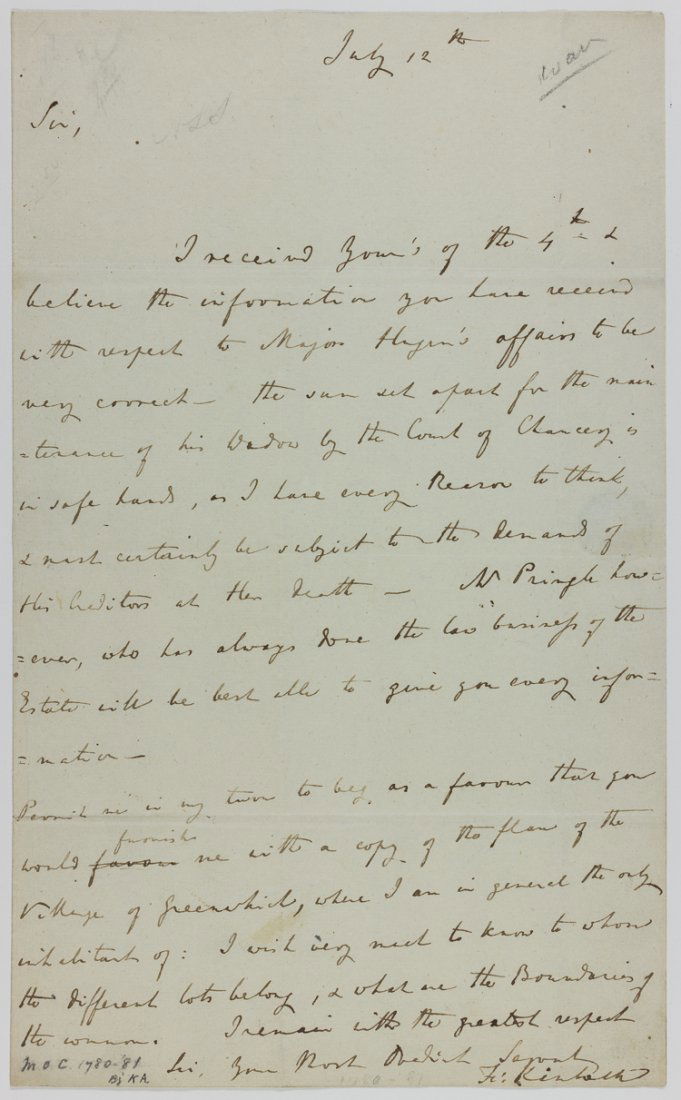 July 12th
Sir,
I received Your's of the 4th &
believe the information you have received
with respect to Major Hugen's affairs to be
very correct – the sum set apart for the main
=tenance of his Widow by the Court of Chancery is
in safe hands, as I have every Reason to think,
& must certainly be subject to the Demands of
His Creditors at Her Death – Mr Pringle how=
=ever, who has always done the law business of the
Estate will be best able to give you every infor=
=mation –
Permit me in my turn to beg as a favour that you
furnish
would favour me with a copy of the plan of the
Village of Greenwhich, where I am in general the only
inhabitant of: I wish very much to know to whom
the different lots belong, & what are the Boundaries of
the common. I remain with the greatest respect
Sir, Your Most Obedient Servant
Fr: Kinloch
M.O.C. 1780-81
By KA